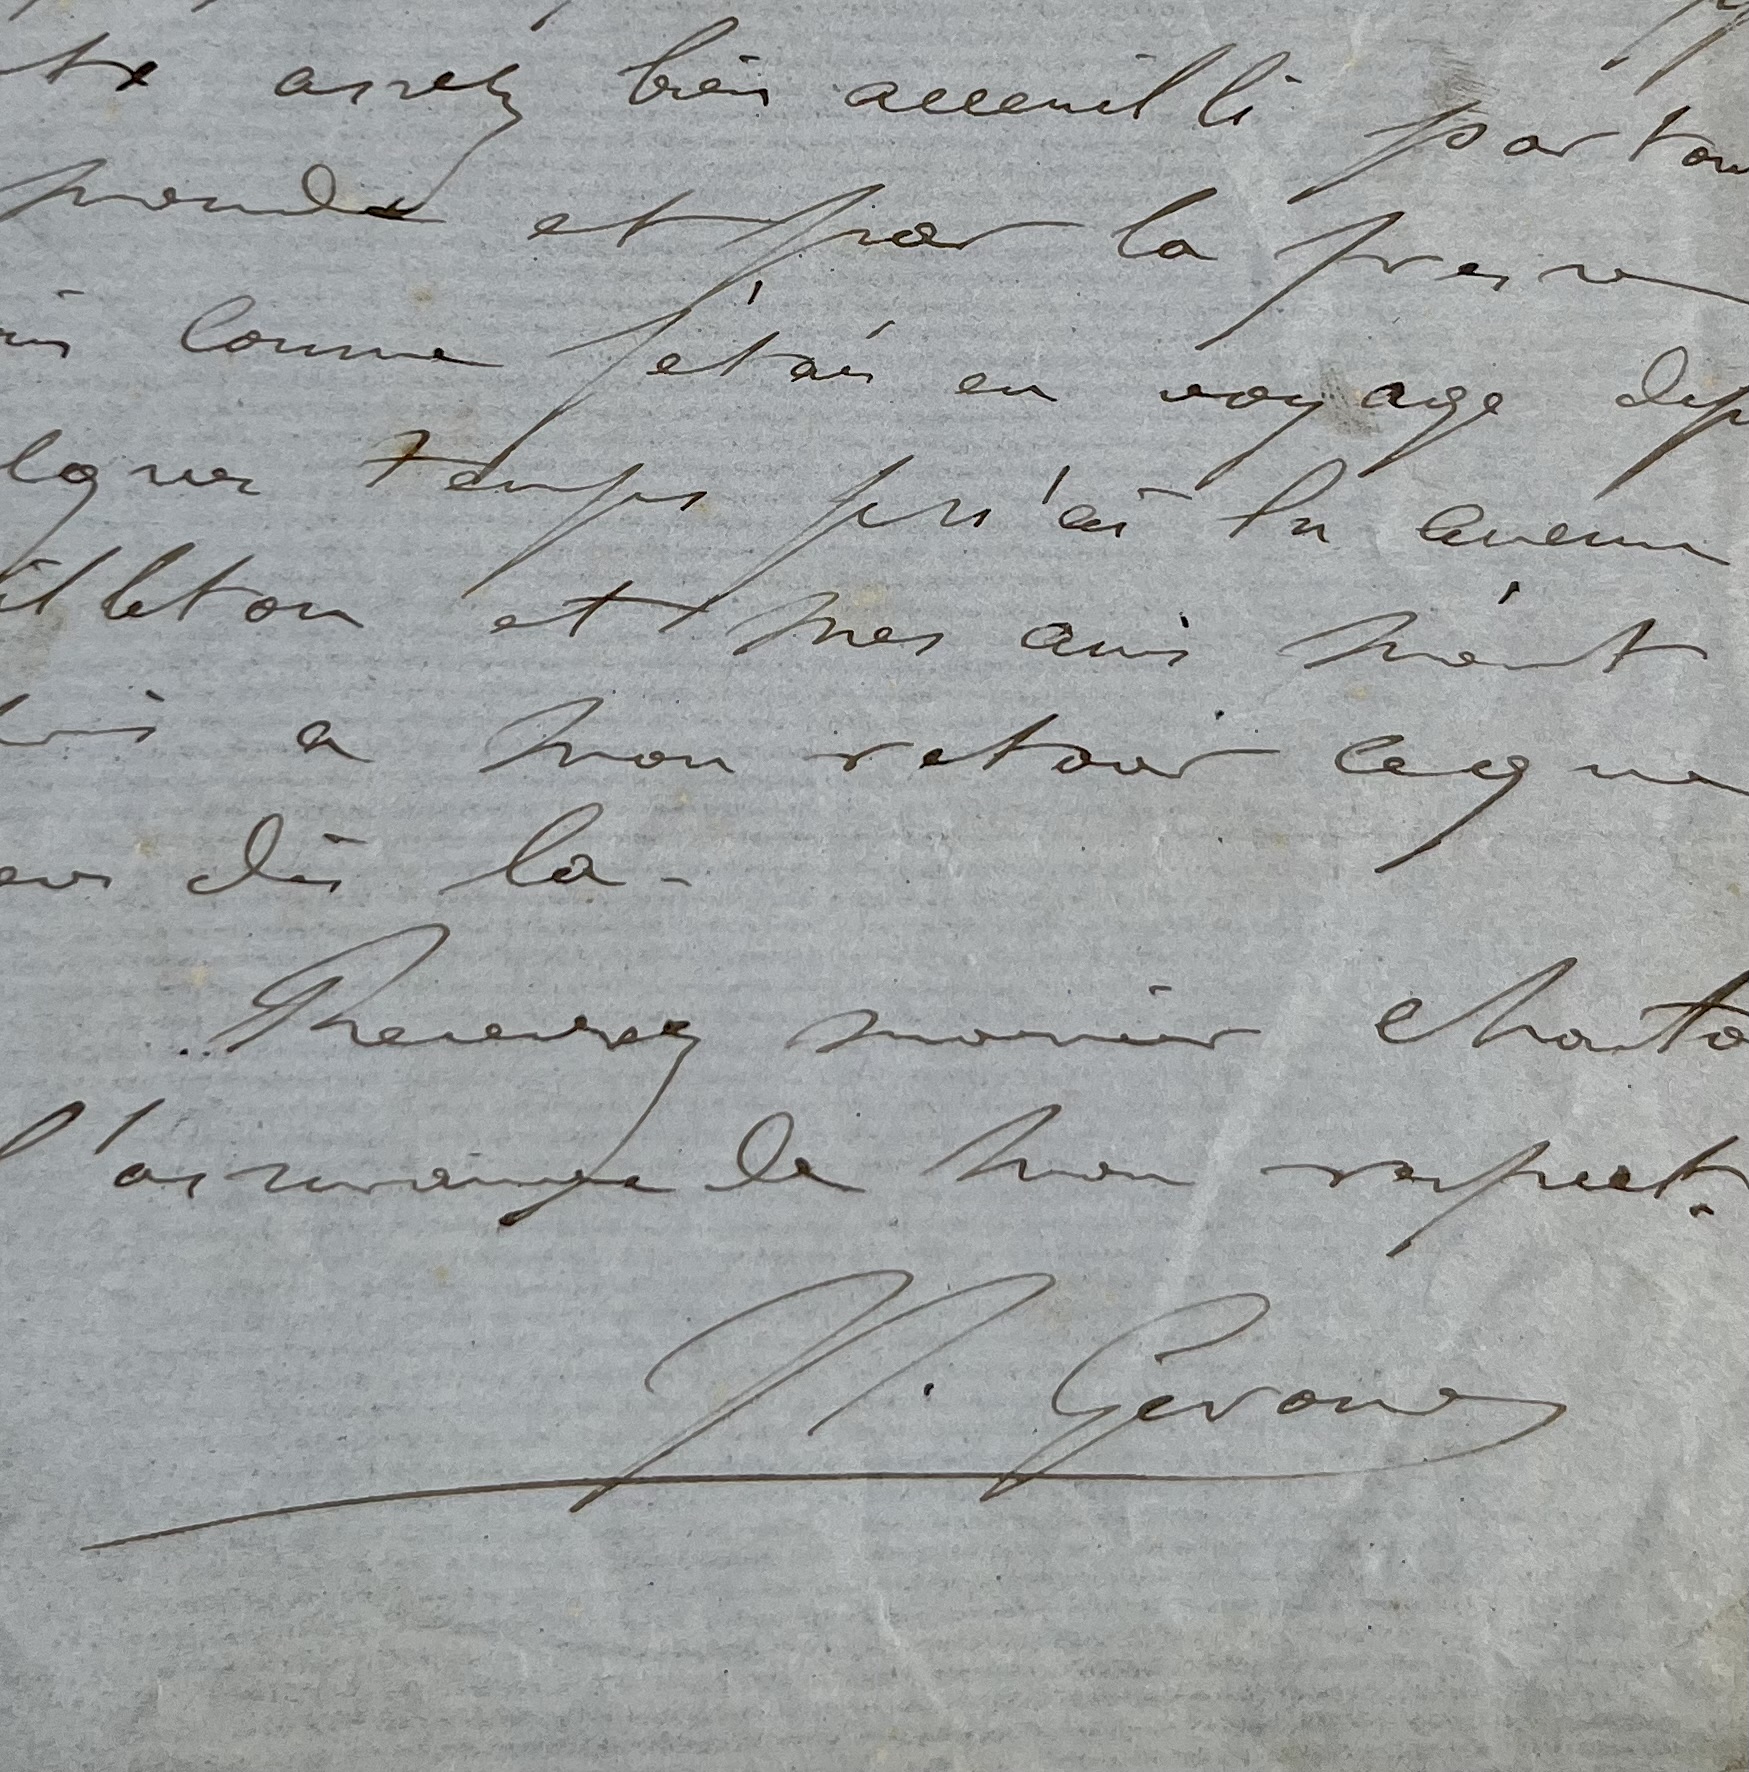 été assez bien accueilli par tou
monde et par la presse
ais comme j'étais en voyage dep
lques temps je n'ai lu aucun
illeton et mes amis m'ont
à mon retour ce que
dis la.
Recevez monsieur Chanto
l'assurance de mon respect.
J. Gérome